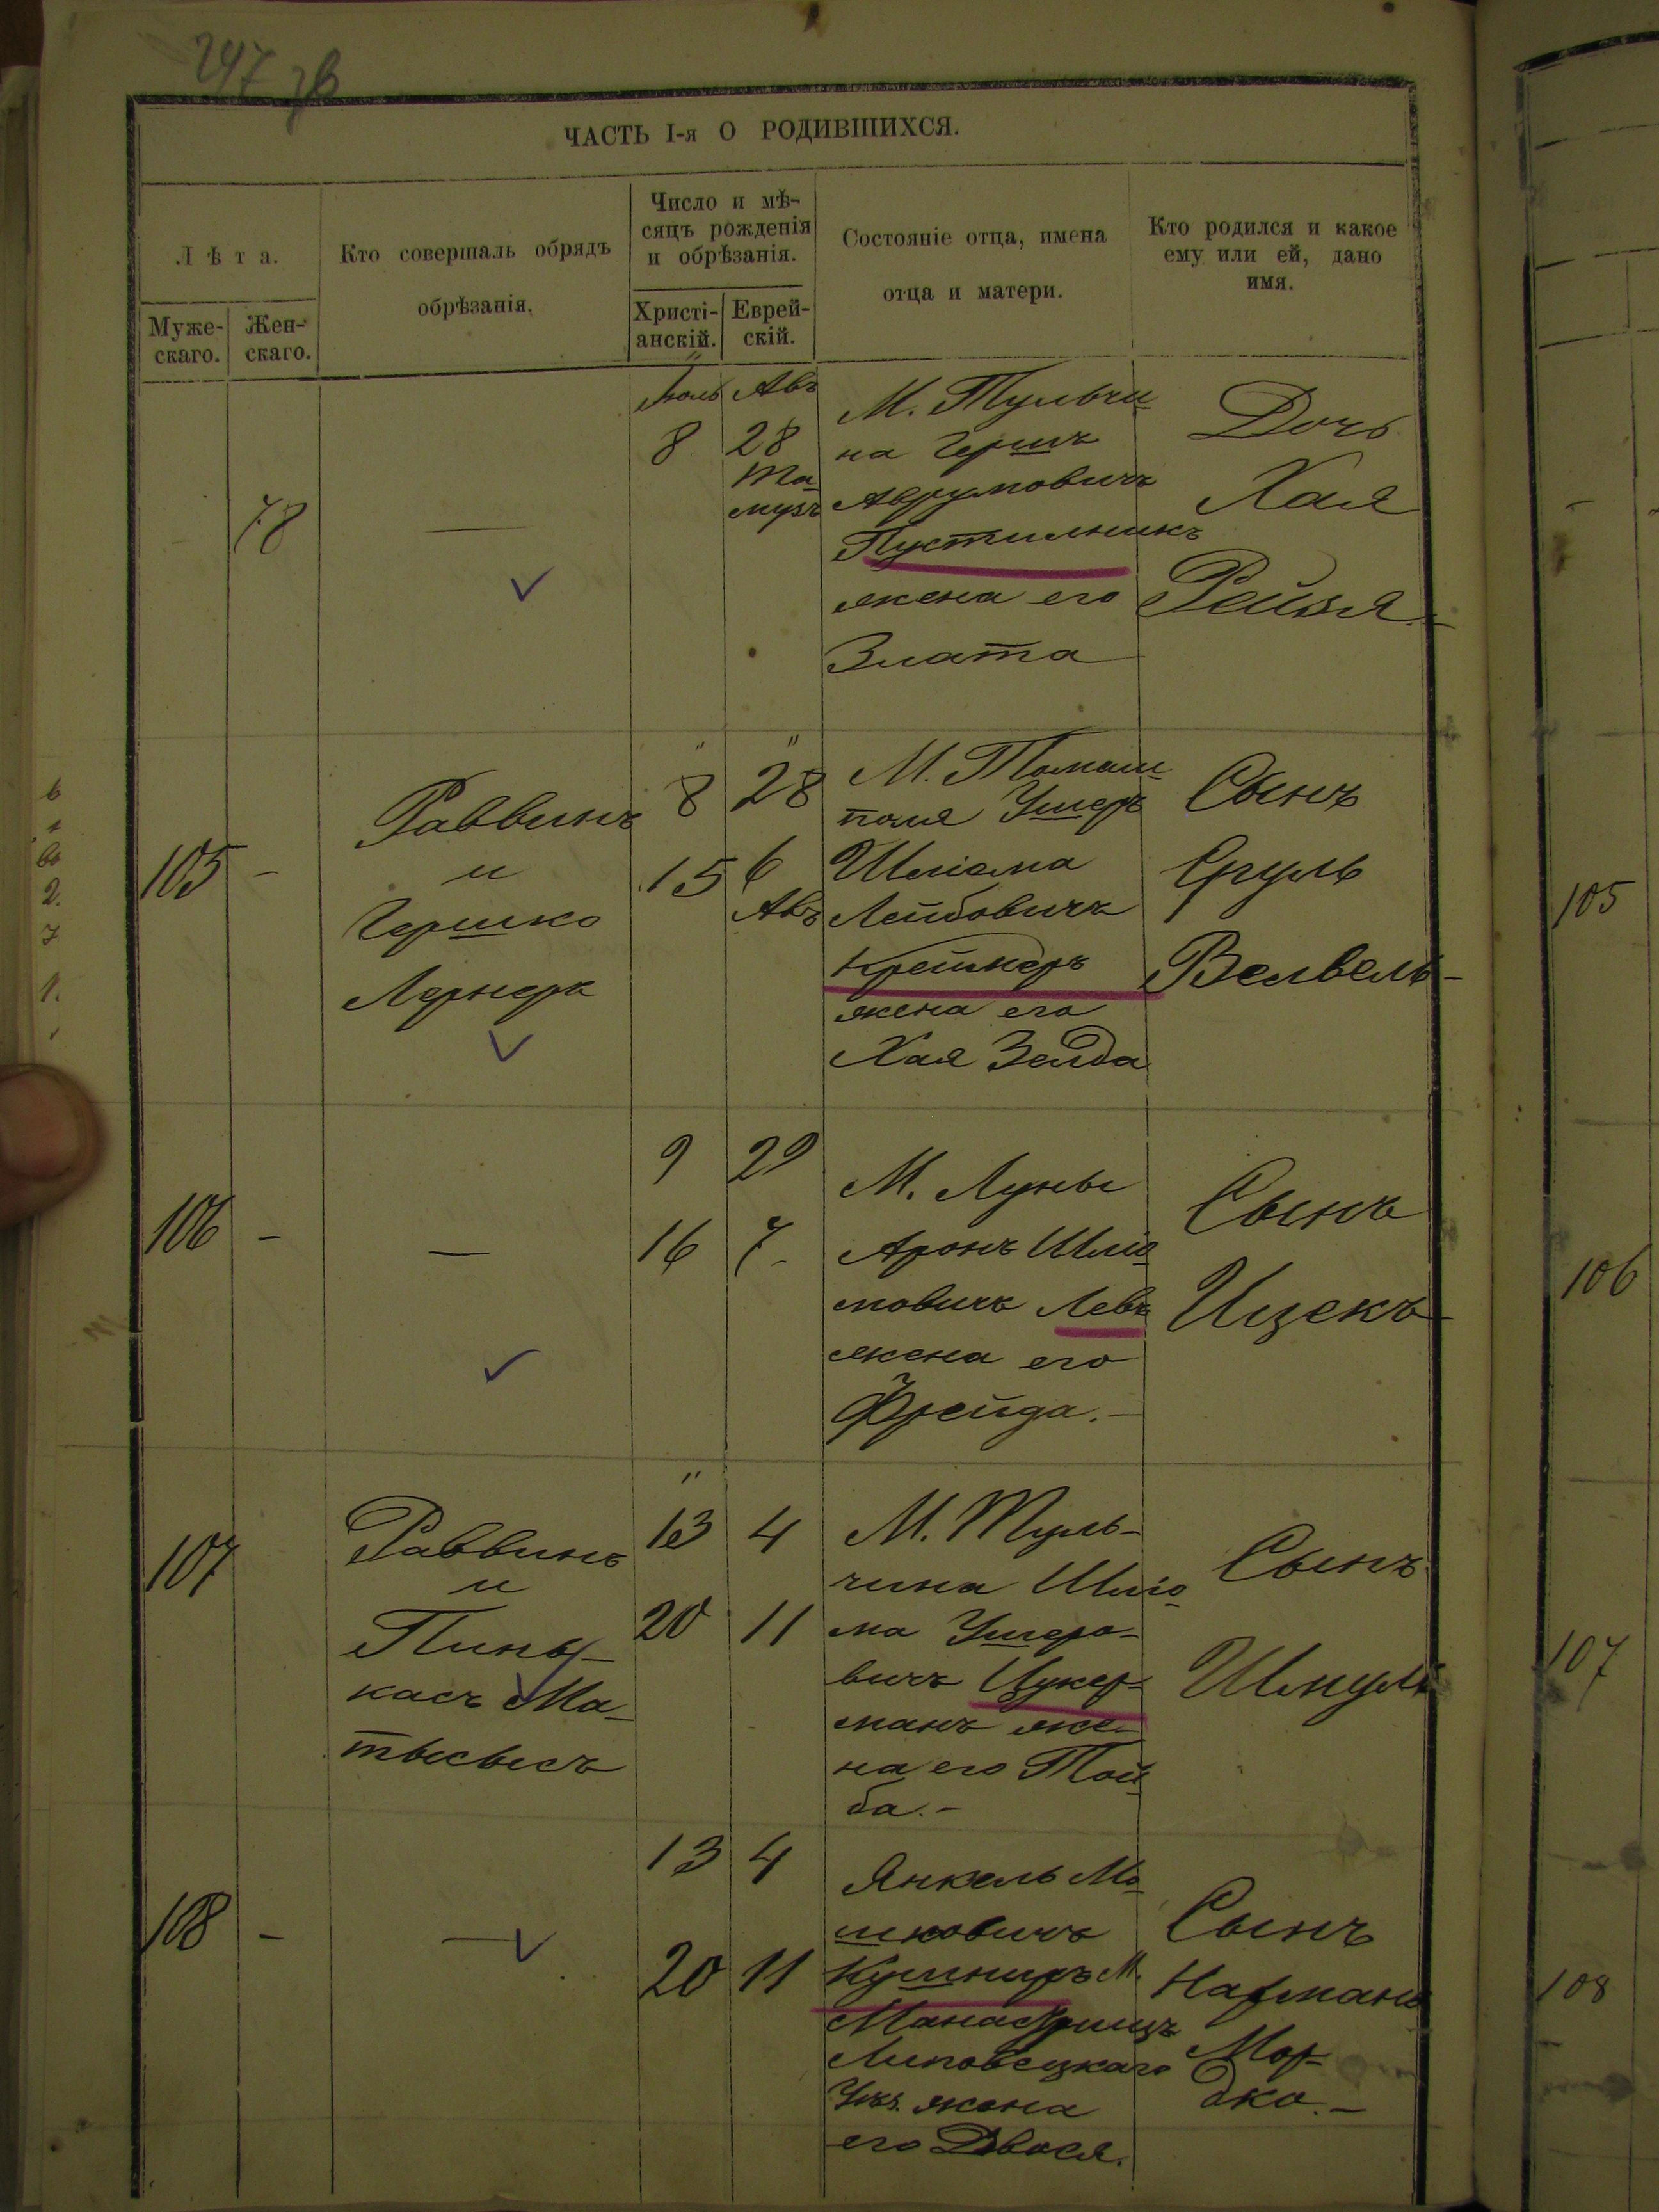 247 зв
ЧАСТЬ I-я О РОДИВШИХСЯ.
Лѣта.
Муже-
скаго.
Жен-
скаго.
Кто совершалъ обрядъ
обрѣзанія.
Число и мѣ-
сяцъ рожденія
и обрѣзанія.
Христі-
анскій.
Еврей-
скій.
Состояніе отца, имена
отца и матери.
Кто родился и какое
ему или ей, дано
имя.
78
—
Июль
8
Авъ
28
Та-
музъ
М. Тульчи-
на Гершъ
Аврумовичъ
Пустильникъ
жена его
Злата
Дочь
Хая
Рейзя
105 -
Раввинъ
и
Гершко
Лернеръ
" "
8 28
15 6
Авъ
М. Томаш-
поля Ушеръ
Шлiома
Лейбовичъ
Крейнеръ
жена его
Хая Зелда
Сынъ
Сруль
Велвель -
106 -
—
9 29
16 7
М. Лучы
Аронъ Шлiо-
мовичъ Левъ
жена его
Фрейда. -
Сынъ
Ицекъ
107
Раввинъ
и
Пинь-
касъ Ма-
тысысъ
"
13 4
20 11
М. Туль-
чина Шлiо-
ма Ушеро-
вичъ Цукер-
манъ же-
на его Той-
ба. -
Сынъ
Шмуль
108 -
—
13 4
20 11
Янкель Мо-
шковичъ
Кушниръ М.
Манастрищъ
Липовецкаго
Уѣз. жена
его Двося.
Сынъ
Нахманъ
Мор-
дко. -
105
106
107
108